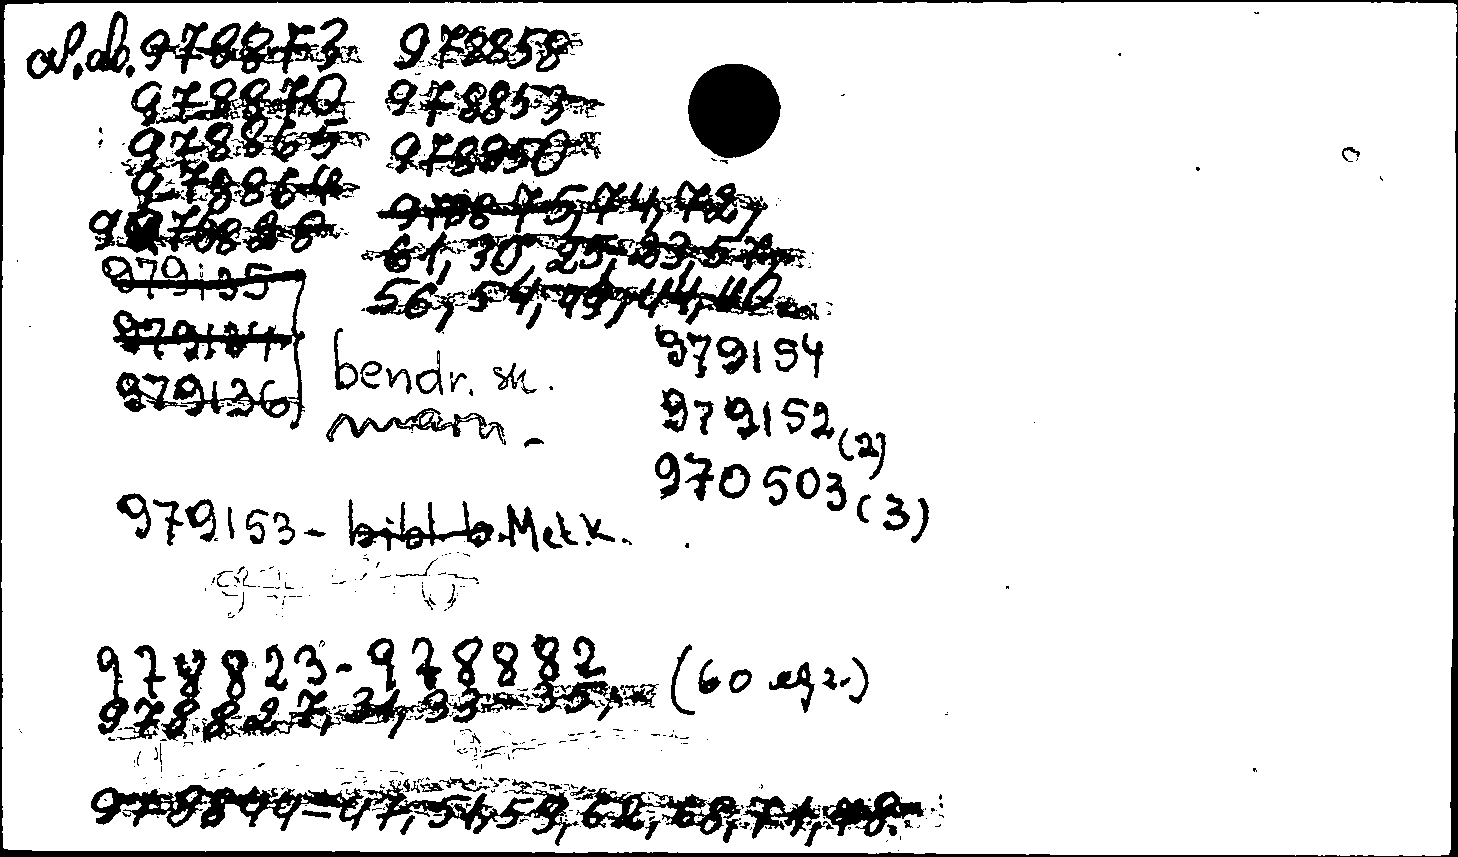 ol.ab. 978873 978858
978870 978853
978865 978850
978864 978875, 74, 72,
976828 61, 30, 25, 23, 57,
979135 56, 54, 49, 44, 40
979134 979154
979136 bendr. sk. 979152 (2)
970503 (3)
979153 - bibl. b. Met.k.
978823-978882 (60 egz.)
978827, 31, 33-35,
978844-47, 51, 59, 62, 68, 71, 78.